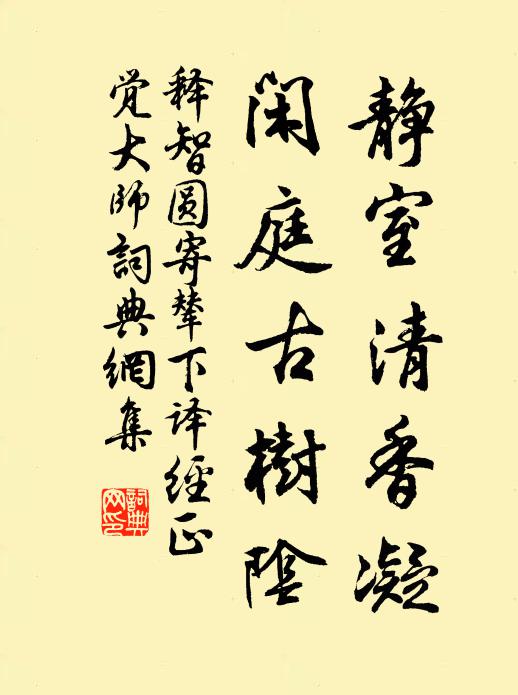 静室清香凝
閑庭古樹陰
释智圆寄辇下译經正
觉大师詞典網集
詞典
网印